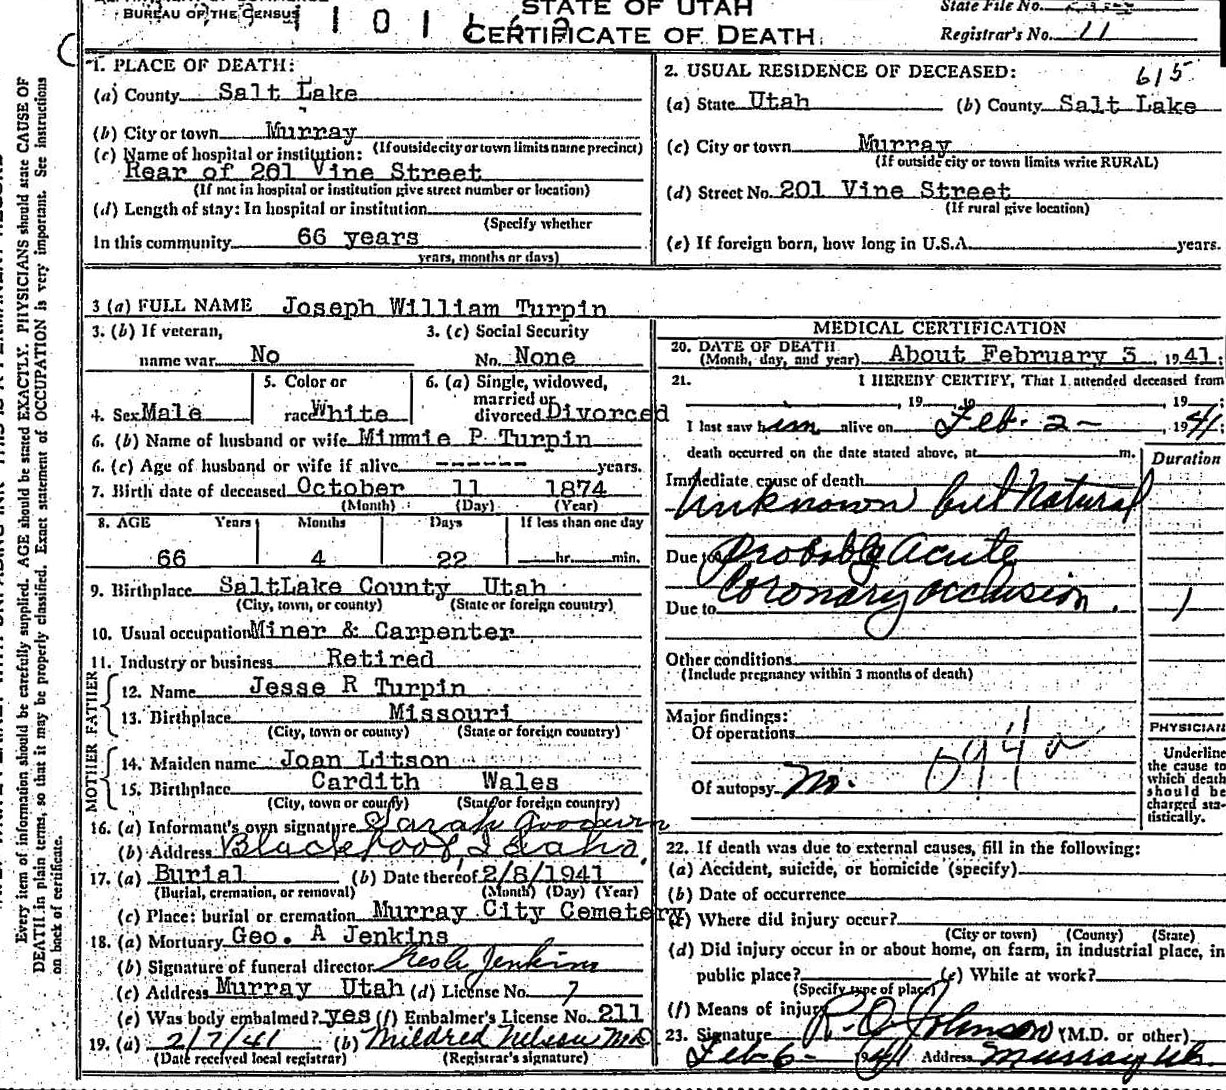 BUREAU OF THE CENSUS
STATE OF UTAH
CERTIFICATE OF DEATH
State File No.
Registrar's No. 11
1. PLACE OF DEATH:
(a) County Salt Lake
(b) City or town Murray
(If outside city or town limits name precinct)
(c) Name of hospital or institution:
Rear of 201 Vine Street
(If not in hospital or institution give street number or location)
(d) Length of stay: In hospital or institution
(Specify whether
In this community 66 years
years, months or days)
2. USUAL RESIDENCE OF DECEASED: 615
(a) State Utah (b) County Salt Lake
(c) City or town Murray
(If outside city or town limits write RURAL)
(d) Street No. 201 Vine Street
(If rural give location)
(e) If foreign born, how long in U.S.A. years.
3 (a) FULL NAME Joseph William Turpin
3. (b) If veteran,
name war No
3. (c) Social Security
No. None
4. Sex Male
5. Color or
race White
6. (a) Single, widowed,
married or
divorced Divorced
6. (b) Name of husband or wife Mimmie P Turpin
6. (c) Age of husband or wife if alive ------ years.
7. Birth date of deceased October 11 1874
(Month) (Day) (Year)
8. AGE Years Months Days If less than one day
66 4 22 hr. min.
9. Birthplace SaltLake County Utah
(City, town, or county) (State or foreign country)
10. Usual occupation Miner & Carpenter
11. Industry or business Retired
FATHER
12. Name Jesse R Turpin
13. Birthplace Missouri
(City, town or county) (State or foreign country)
MOTHER
14. Maiden name Joan Litson
15. Birthplace Cardith Wales
(City, town or county) (State or foreign country)
16. (a) Informant's own signature Sarah Goodwin
(b) Address Blackfoot, Idaho.
17. (a) Burial (b) Date thereof 2/8/1941
(Burial, cremation, or removal) (Month) (Day) (Year)
(c) Place: burial or cremation Murray City Cemetery
18. (a) Mortuary Geo. A Jenkins
(b) Signature of funeral director Jenkins
(c) Address Murray Utah (d) License No. 7
(e) Was body embalmed? yes (f) Embalmer's License No. 211
19. (a) 2/7/41 (b) Mildred Nelson
(Date received local registrar) (Registrar's signature)
MEDICAL CERTIFICATION
20. DATE OF DEATH
(Month, day, and year) About February 3, 1941;
21. I HEREBY CERTIFY, That I attended deceased from
, 19 to , 19 ;
I last saw him alive on Feb. 2 - , 1941;
death occurred on the date stated above, at m.
Duration
Immediate cause of death
Unknown but Natural
Due to Probably Acute
Coronary occlusion.
Due to 1
Other conditions
(Include pregnancy within 3 months of death)
Major findings:
Of operations
094a
Of autopsy No.
PHYSICIAN
Underline
the cause to
which death
should be
charged sta-
tistically.
22. If death was due to external causes, fill in the following:
(a) Accident, suicide, or homicide (specify)
(b) Date of occurrence
(c) Where did injury occur?
(City or town) (County) (State)
(d) Did injury occur in or about home, on farm, in industrial place, in
public place? (e) While at work?
(Specify type of place)
(f) Means of injury
23. Signature R. O. Johnson (M.D. or other)
Feb-6- 1941 Address Murray Ut.
Every item of information should be carefully supplied. AGE should be stated EXACTLY. PHYSICIANS should state CAUSE OF
DEATH in plain terms, so that it may be properly classified. Exact statement of OCCUPATION is very important. See instructions
on back of certificate.